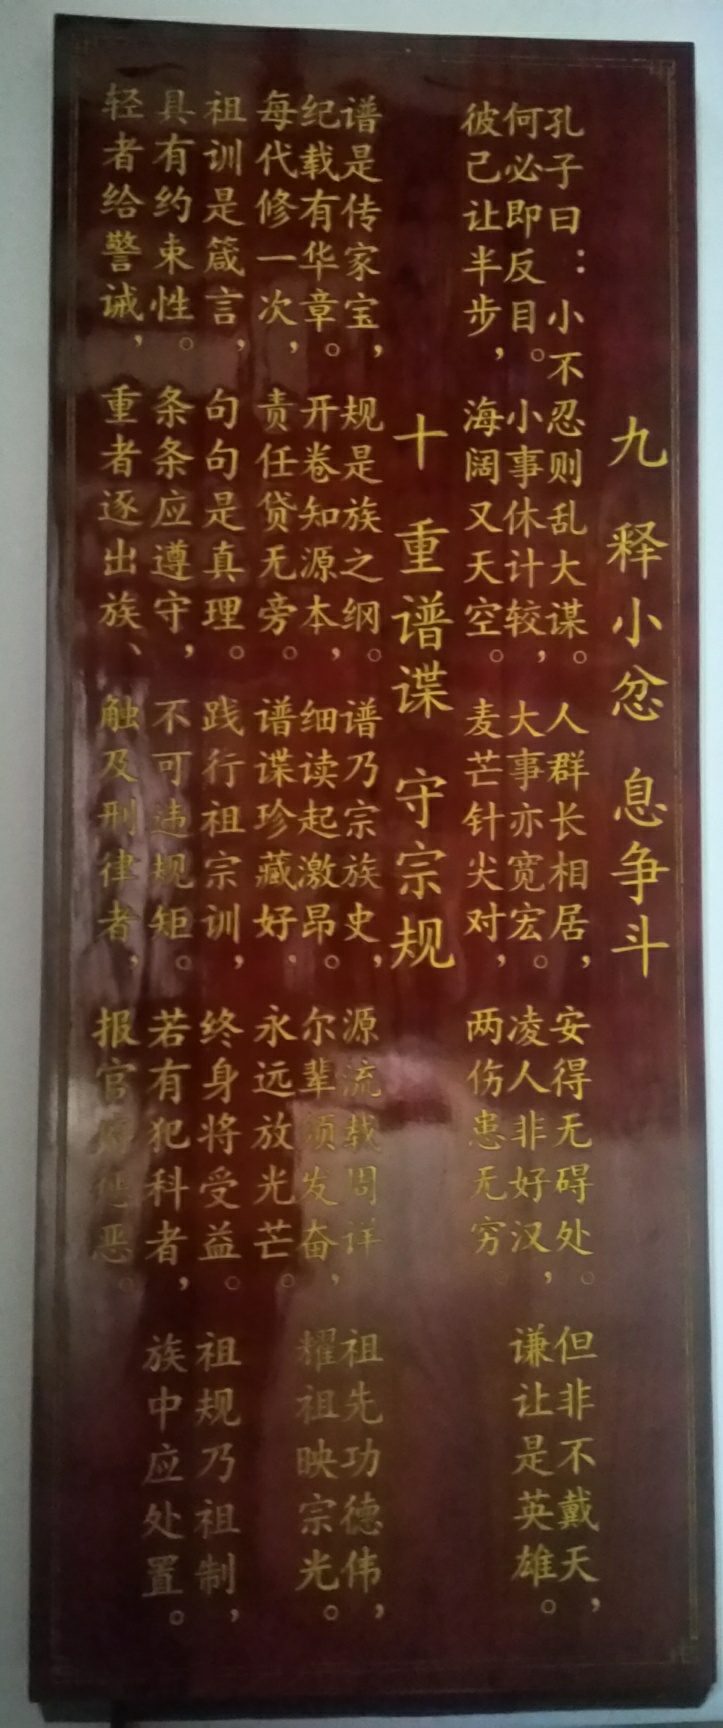 九 释小忿 息争斗
孔子曰：小不忍则乱大谋。人群长相居，安得无碍处。但非不戴天，
何必即反目。小事休计较，大事亦宽宏。凌人非好汉，谦让是英雄。
彼己让半步，海阔又天空。麦芒针尖对，两伤患无穷。
十 重谱谍 守宗规
谱是传家宝，规是族之纲。谱乃宗族史，源流载周详 祖先功德伟，
纪载有华章。开卷知源本，细读起激昂。尔辈须发奋，耀祖映宗光。
每代修一次，责任贷无旁。谱谍珍藏好，永远放光芒。
祖训是箴言，句句是真理。践行祖宗训，终身将受益。祖规乃祖制，
具有约束性。条条应遵守，不可违规矩。若有犯科者，族中应处置。
轻者给警诫，重者逐出族、触及刑律者，报官 恶。